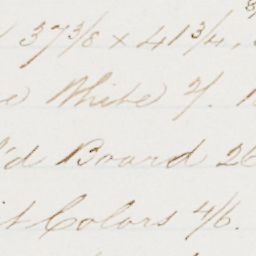 37 3/8 x 41 3/4,
White 2/.
'd Board 26
Colors 4/6.